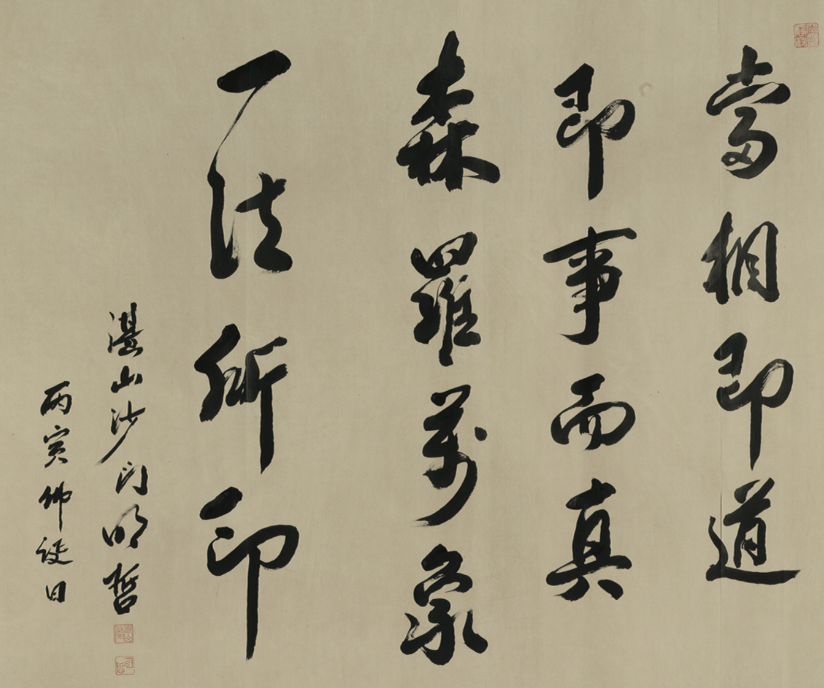 當相即道
即事而真
森羅萬象
一法所印
湛山沙门明哲
丙寅佛诞日